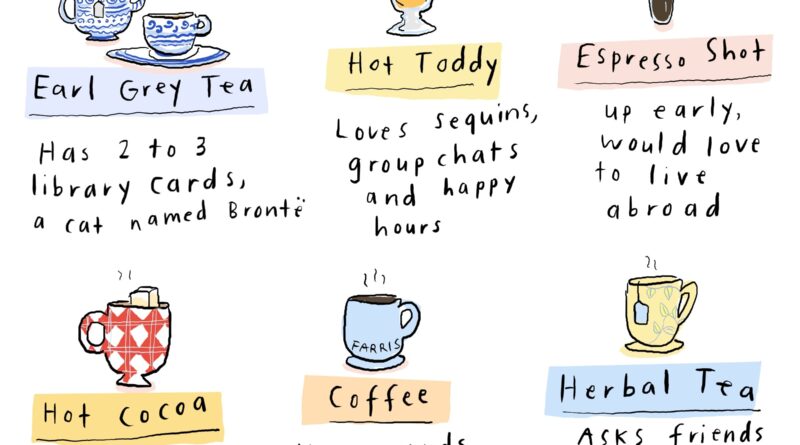 Earl Grey Tea
Has 2 to 3
library cards,
a cat named Brontë
Hot Toddy
Loves sequins,
group chats
and happy
hours
Espresso Shot
up early,
would love
to live
abroad
Hot Cocoa
FARRIS
Coffee
Herbal Tea
ASKS friends